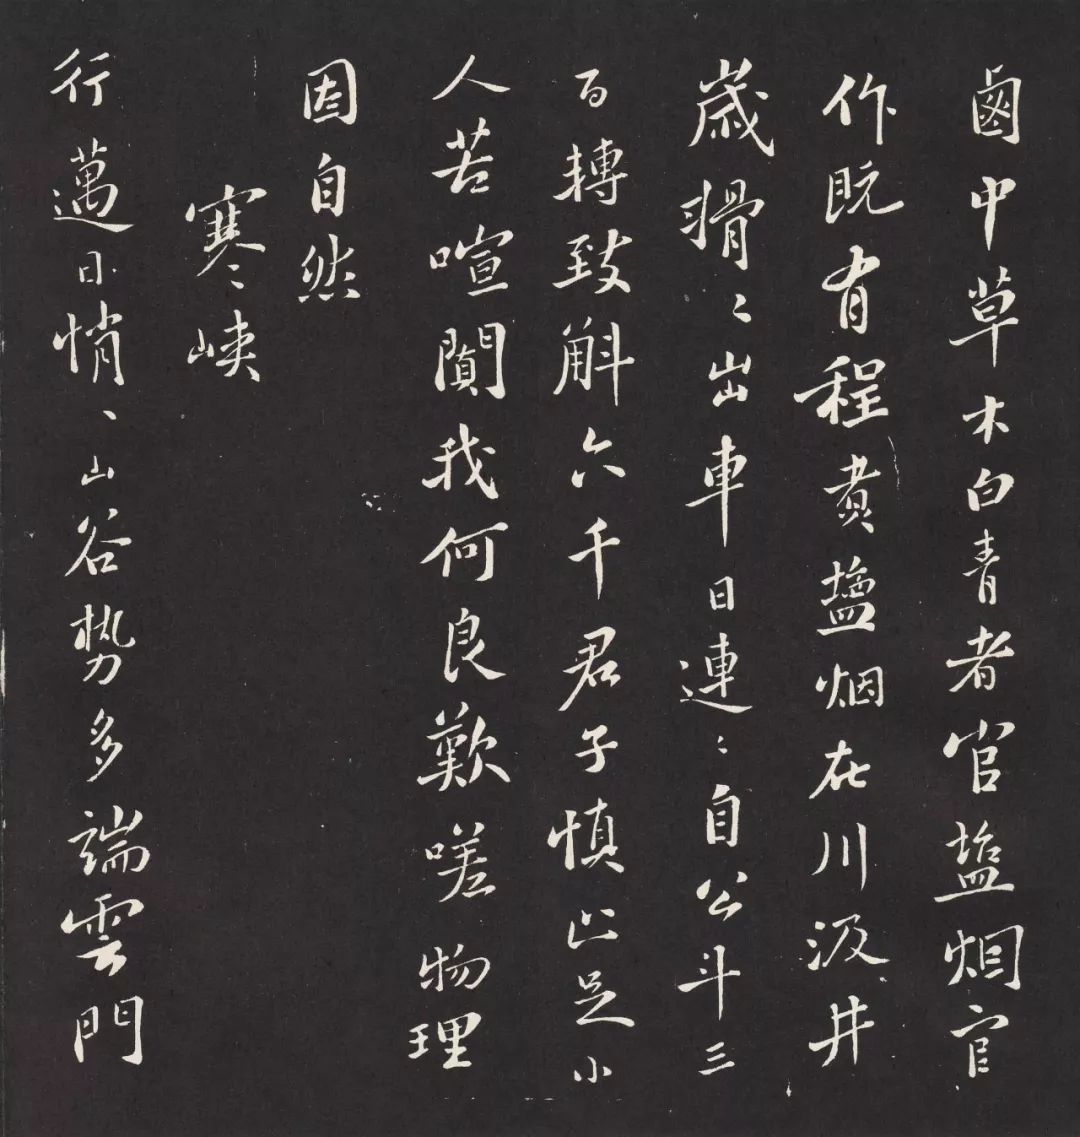 鹵中草木白青者官塩烟官
作既有程煑塩烟在川汲井
歲搰〻出車日連〻自公斗三
百轉致斛六千君子慎止足小
人苦喧闐我何良歎嗟物理
因自然
寒峽
行邁日悄〻山谷勢多端雲門